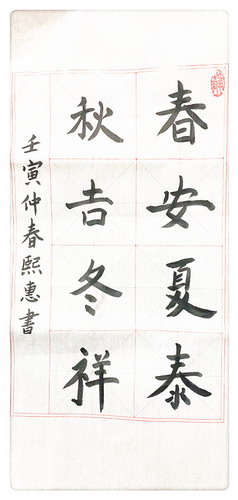 春安夏泰
秋吉冬祥
壬寅仲春熙惠書